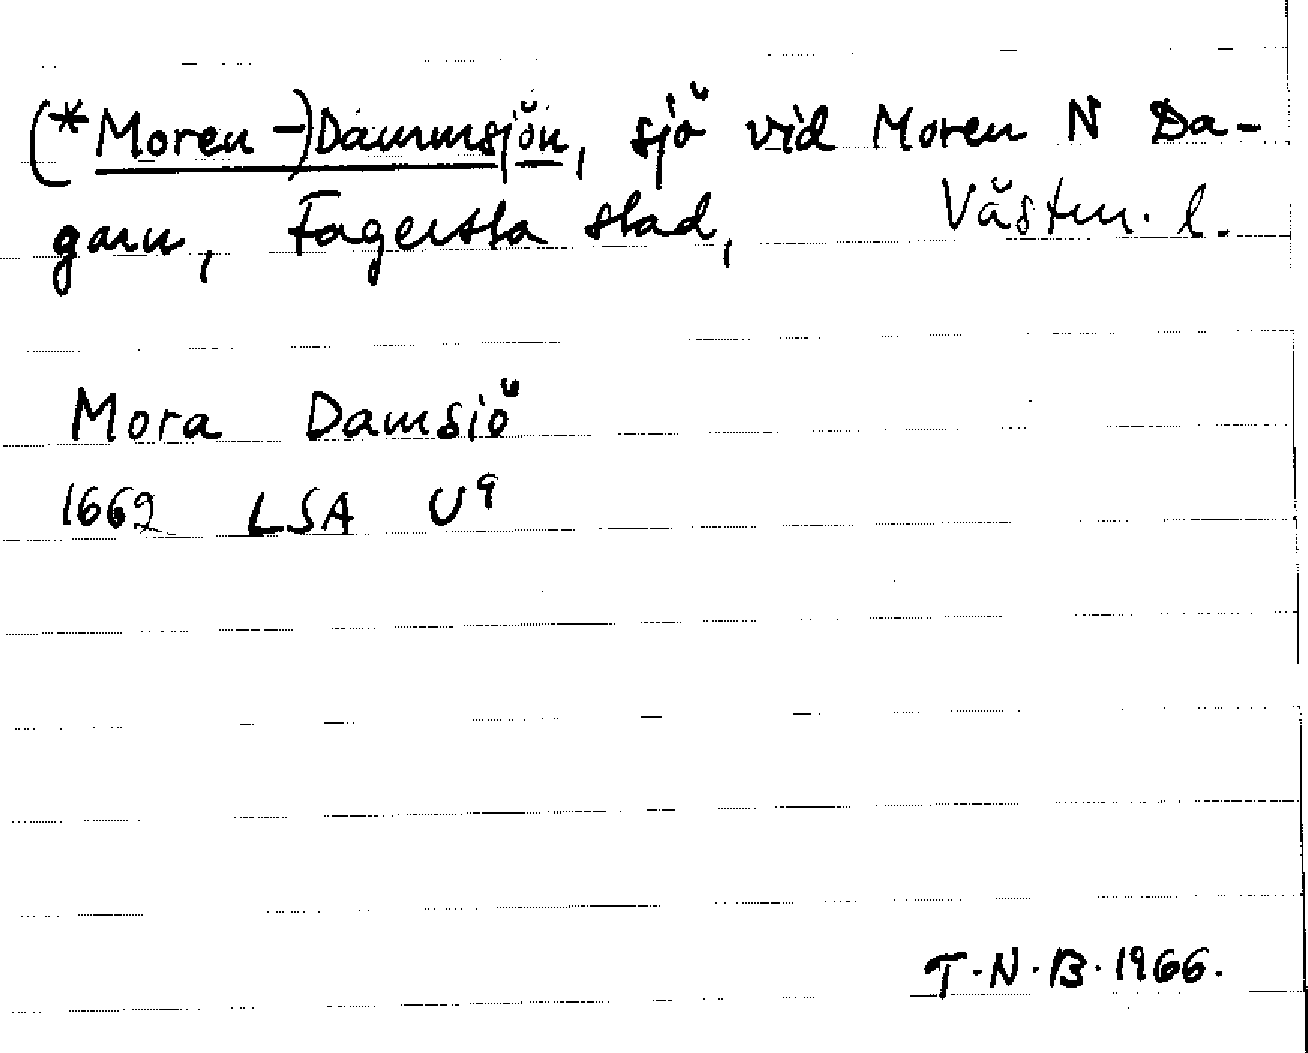 (*Moren-)Dammsjön, sjö vid Moren N Da-
garn, Fagersta stad, Västm. l.
Mora Damsiö
1662 LSA U9
T.N.B. 1966.